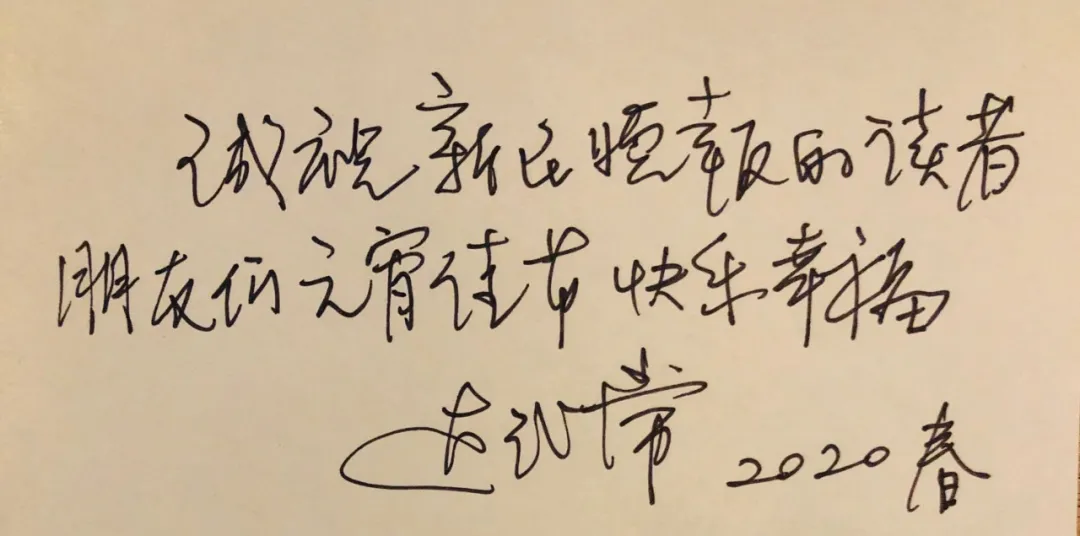 诚祝新民晚报的读者
朋友们元宵佳节快乐幸福
2020春